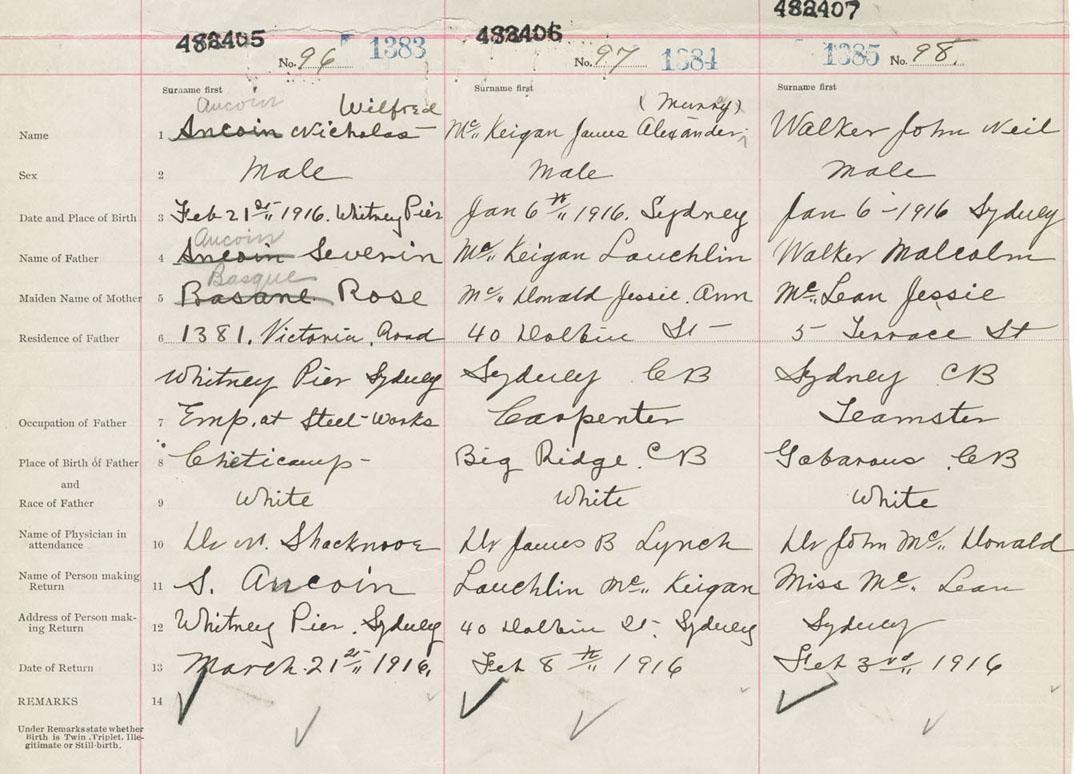 482405 482406 482407
No. 96 1383 No. 97 1384 1385 No. 98.
Surname first Surname first Surname first
Aucoin Wilfred (Murray)
Name 1 Ancoin Nicholas Mc Keigan James Alexander Walker John Neil
Sex 2 Male Male Male
Date and Place of Birth 3 Feb 21st 1916. Whitney Pier Jan 6th 1916. Sydney Jan 6 - 1916 Sydney
Aucoin
Name of Father 4 Ancoin Severin Mc Keigan Lauchlin Walker Malcolm
Basque
Maiden Name of Mother 5 Basane Rose Mc Donald Jessie Ann Mc Lean Jessie
Residence of Father 6 1381. Victoria Road 40 Dolbin St - 5 Terrace St
Whitney Pier Sydney Sydney CB Sydney CB
Occupation of Father 7 Emp. at Steel-Works Carpenter Teamster
Place of Birth of Father 8 Cheticamp - Big Ridge. CB Gabarous CB
and
Race of Father 9 White White White
Name of Physician in
attendance 10 Dr M. Dr James B Lynch Dr John Mc Donald
Name of Person making
Return 11 S. Aucoin Lauchlin Mc Keigan Miss Mc Lean
Address of Person mak-
ing Return 12 Whitney Pier. Sydney 40 Dolbin St. Sydney Sydney
Date of Return 13 March 21st 1916. Feb 8th 1916 Feb 3rd 1916
REMARKS 14
Under Remarks state whether
Birth is Twin, Triplet, Ille-
gitimate or Still-birth.